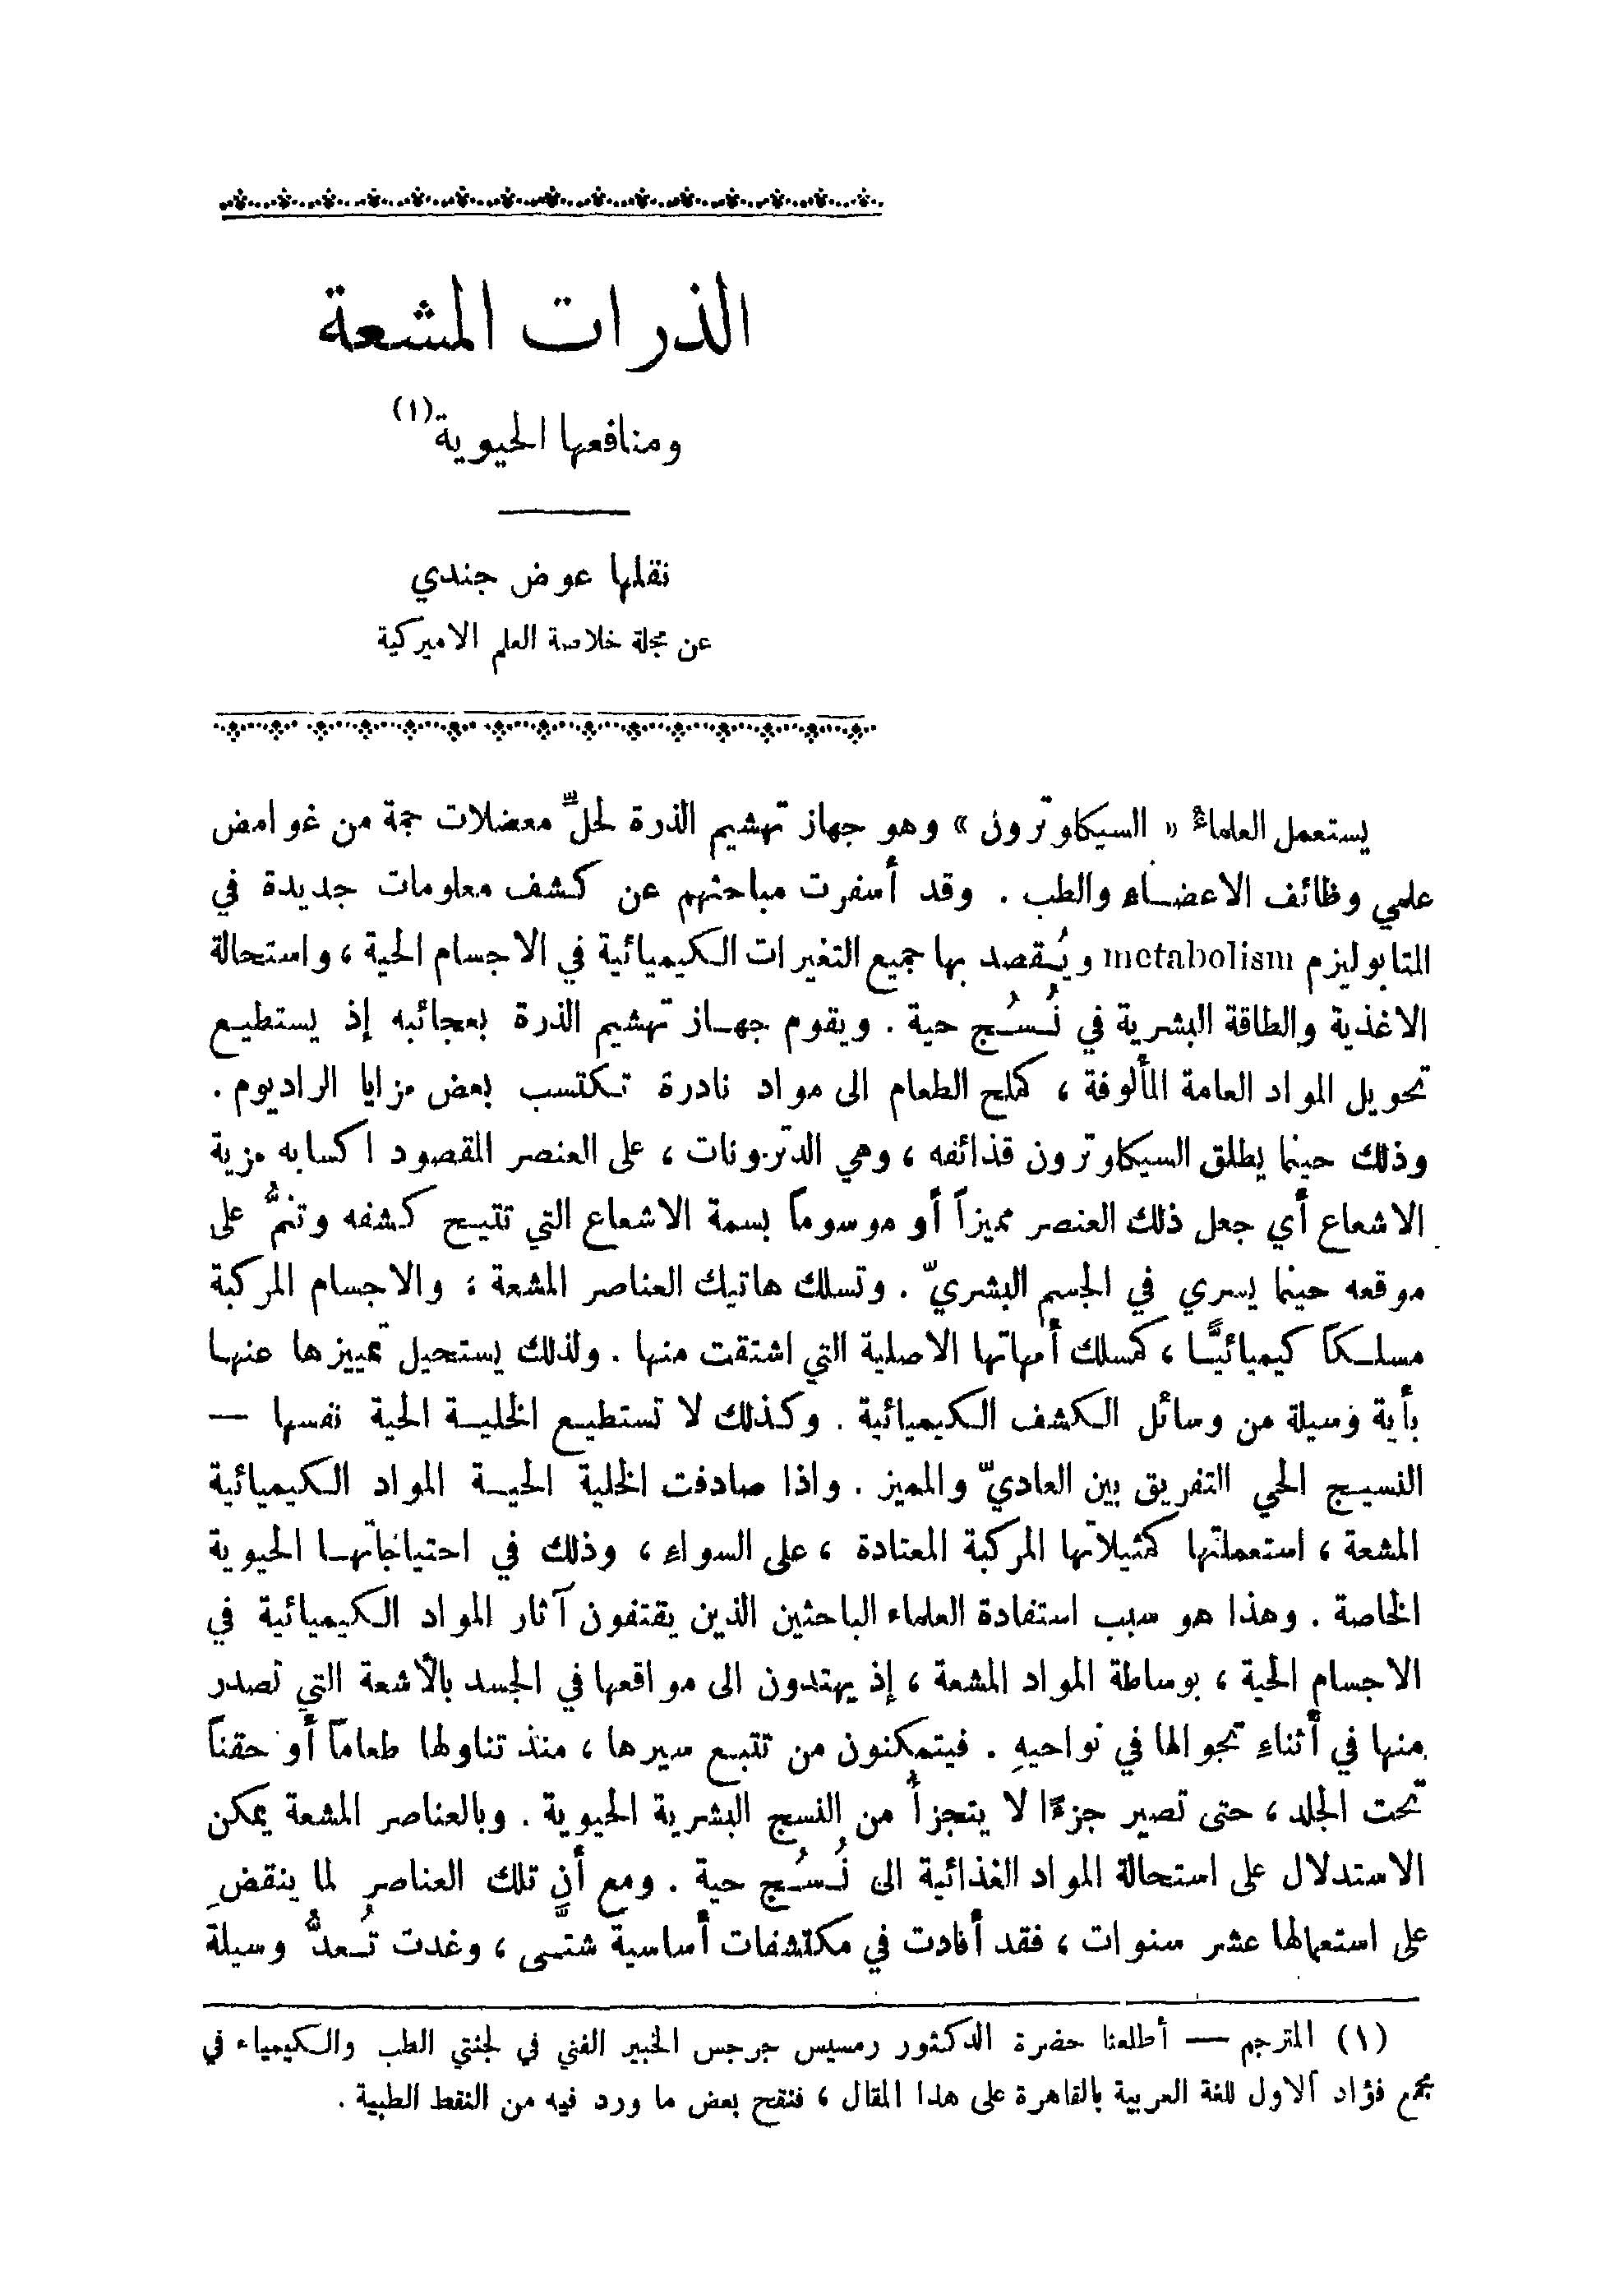 الذرات المشعة
ومنافعها الحيوية(١)
نقلها عوض جندي
عن مجلة خلاصة العلم الاميركية
يستعمل العلماءُ « السيكلوترون » وهو جهاز تهشيم الذرة لحلِّ معضلات جمة من غوامض
علمي وظائف الاعضاء والطب . وقد أسفرت مباحثهم عن كشف معلومات جديدة في
المتابوليزم metabolism ويُقصد بها جميع التغيرات الكيميائية في الاجسام الحية ، واستحالة
الاغذية والطاقة البشرية في نُسُج حية . ويقوم جهاز تهشيم الذرة بعجائبه إذ يستطيع
تحويل المواد العامة المألوفة ، كملح الطعام الى مواد نادرة تكتسب بعض مزايا الراديوم .
وذلك حينما يطلق السيكلوترون قذائفه ، وهي الدتربونات ، على العنصر المقصود اكسابه مزية
الاشعاع أي جعل ذلك العنصر مميزاً أو موسوماً بسمة الاشعاع التي تتيح كشفه وتنمُّ على
موقعه حينما يسري في الجسم البشريّ . وتسلك هاتيك العناصر المشعة ؛ والاجسام المركبة
مسلكاً كيميائيًّا ، كمسلك أمهاتها الاصلية التي اشتقت منها . ولذلك يستحيل تمييزها عنها
بأية وسيلة من وسائل الكشف الكيميائية . وكذلك لا تستطيع الخلية الحية نفسها —
النسيج الحي التفريق بين العاديّ والمميز . واذا صادفت الخلية الحية المواد الكيميائية
المشعة ، استعملتها كمثيلاتها المركبة المعتادة ، على السواء ، وذلك في احتياجاتها الحيوية
الخاصة . وهذا هو سبب استفادة العلماء الباحثين الذين يقتفون آثار المواد الكيميائية في
الاجسام الحية ، بوساطة المواد المشعة ، إذ يهتدون الى مواقعها في الجسد بالأشعة التي تصدر
منها في أثناءِ تجوالها في نواحيهِ . فيتمكنون من تتبع سيرها ، منذ تناولها طعاماً أو حقناً
تحت الجلد ، حتى تصير جزءًا لا يتجزأُ من النسج البشرية الحيوية . وبالعناصر المشعة يمكن
الاستدلال على استحالة المواد الغذائية الى نُسُج حية . ومع أن تلك العناصر لما ينقضِ
على استعمالها عشر سنوات ، فقد أفادت في مكتشفات أساسية شتَّى ، وغدت تُعدُّ وسيلة
(١) المترجم — أطلعنا حضرة الدكتور رمسيس جرجس الخبير الفني في لجنتي الطب والكيمياء في
مجمع فؤاد الاول للغة العربية بالقاهرة على هذا المقال ، فنقح بعض ما ورد فيه من النقط الطبية .